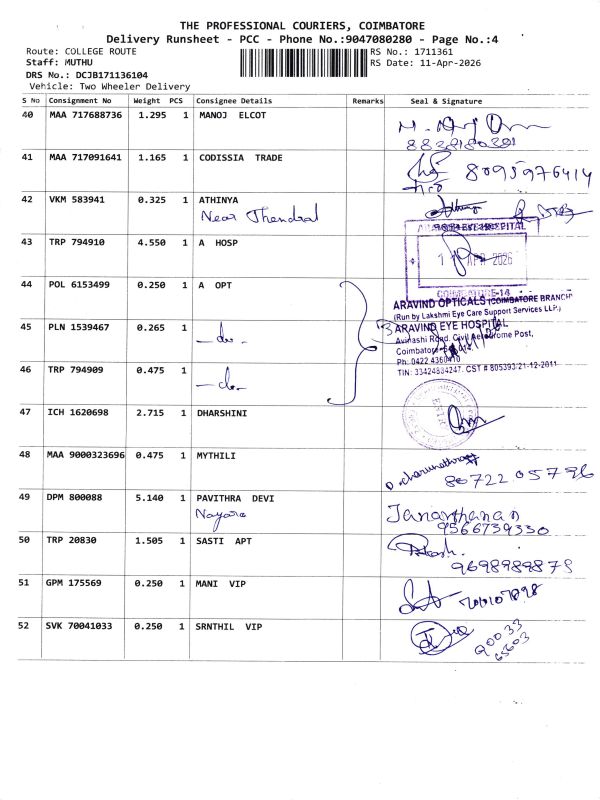 THE PROFESSIONAL COURIERS, COIMBATORE
Delivery Runsheet - PCC - Phone No.:9047080280 - Page No.:4
Route: COLLEGE ROUTE RS No.: 1711361
Staff: MUTHU RS Date: 11-Apr-2026
DRS No.: DCJB171136104
Vehicle: Two Wheeler Delivery
S No Consignment No Weight PCS Consignee Details Remarks Seal & Signature
40 MAA 717688736 1.295 1 MANOJ ELCOT
41 MAA 717091641 1.165 1 CODISSIA TRADE 8095976414
42 VKM 583941 0.325 1 ATHINYA
Near Thendral
43 TRP 794910 4.550 1 A HOSP
EYE HOSPITAL
APR 2026
COIMBATORE-14
44 POL 6153499 0.250 1 A OPT
ARAVIND OPTICALS (COIMBATORE BRANCH)
(Run by Lakshmi Eye Care Support Services LLP.)
45 PLN 1539467 0.265 1 -do-
ARAVIND EYE HOSPITAL
Avinashi Road, Civil Aerodrome Post,
Coimbatore
Ph: 0422 4360410
46 TRP 794909 0.475 1 -do-
TIN: 33424884247. CST # 805393/21-12-2011
47 ICH 1620698 2.715 1 DHARSHINI
48 MAA 9000323696 0.475 1 MYTHILI
80722 05796
49 DPM 800088 5.140 1 PAVITHRA DEVI Janarthanan
Nayara 9566739330
50 TRP 20830 1.505 1 SASTI APT
9698989878
51 GPM 175569 0.250 1 MANI VIP
52 SVK 70041033 0.250 1 SRNTHIL VIP 90033
65603